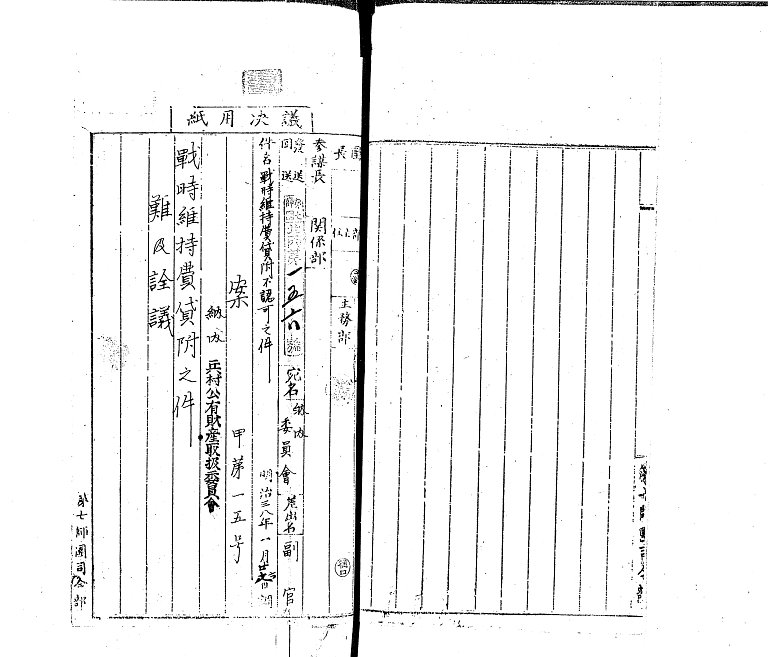 紙用決議
團長
參謀長 關係部
主務部
發送
回送
一五六號 宛名 納內委員會 差出名 副官
件名 戰時維持費貸附不認可之件 明治三八年一月
案 甲第一五号
納內 兵村公有財產取扱委員會
戰時維持費貸附之件
難及詮議
第七師團司令部